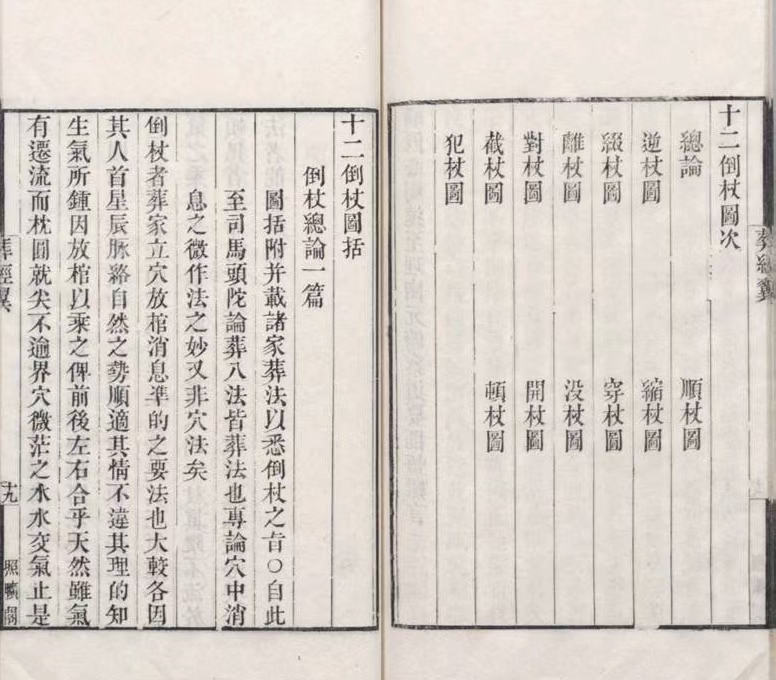 十二倒杖圖次
總論 順杖圖
逆杖圖 縮杖圖
綴杖圖 穿杖圖
離杖圖 没杖圖
對杖圖 開杖圖
截杖圖 頓杖圖
犯杖圖
葬經翼
十二倒杖圖括
倒杖總論一篇
圖括附并載諸家葬法以悉倒杖之旨○自此
至司馬頭陀論葬八法皆葬法也專論穴中消
息之微作法之妙又非穴法矣
倒杖者葬家立穴放棺消息準的之要法也大較各因
其人首星辰脉絡自然之勢順適其情不違其理的知
生氣所鍾因放棺以乘之俾前後左右合乎天然雖氣
有遷流而枕圓就尖不逾界穴微茫之水水交氣止是
葬經翼
十九
照曠閣